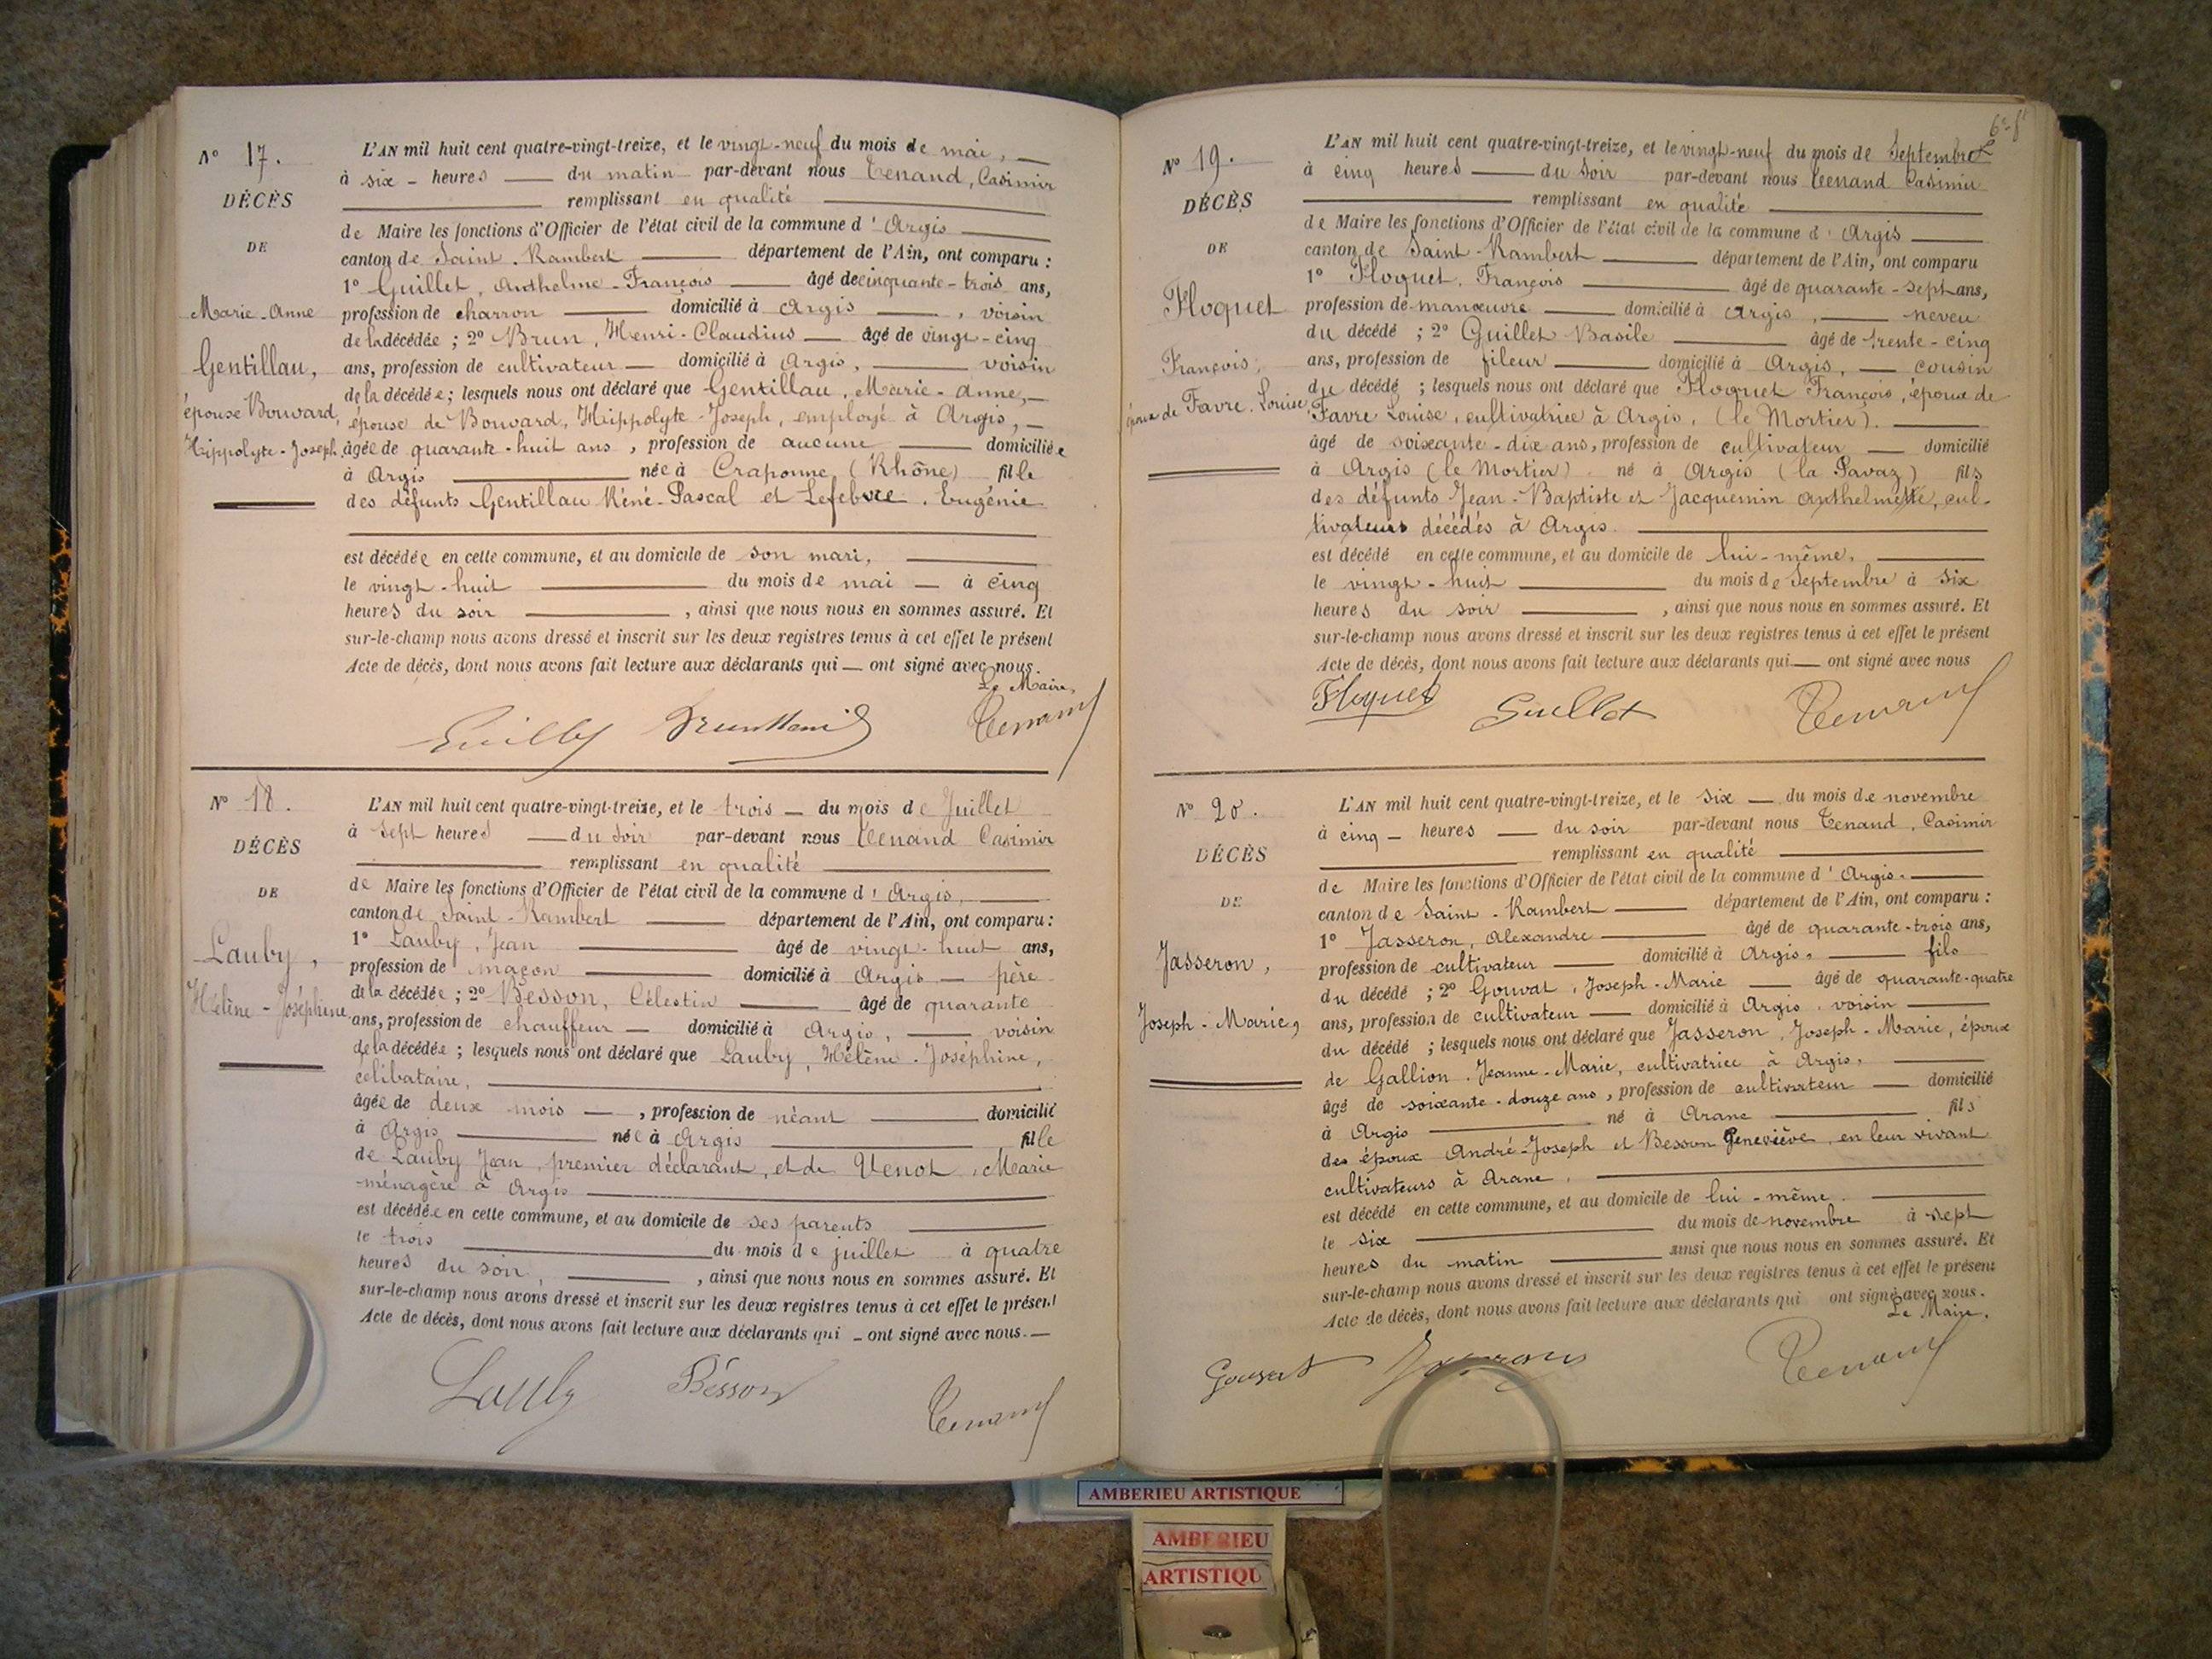 N° 17.
DÉCÈS
DE
Marie-Anne
Gentillau,
épouse Bouvard,
Hippolyte-Joseph
L'AN mil huit cent quatre-vingt-treize, et le vingt-neuf du mois de mai,
à six - heures du matin par-devant nous Tenand, Casimir
remplissant en qualité
de Maire les fonctions d'Officier de l'état civil de la commune d'Argis
canton de Saint-Rambert département de l'Ain, ont comparu :
1° Guillet, Anthelme-François âgé de cinquante-trois ans,
profession de charron domicilié à Argis, voisin
de la décédée ; 2° Brun, Henri-Claudius âgé de vingt-cinq
ans, profession de cultivateur domicilié à Argis, voisin
de la décédée ; lesquels nous ont déclaré que Gentillau, Marie-Anne,
épouse de Bouvard, Hippolyte-Joseph, employé à Argis,
âgée de quarante-huit ans, profession de aucune domiciliée
à Argis née à Craponne (Rhône) fille
des défunts Gentillau Réné-Pascal et Lefebvre. Eugénie
est décédée en cette commune, et au domicile de son mari,
le vingt-huit du mois de mai à cinq
heures du soir, ainsi que nous nous en sommes assuré. Et
sur-le-champ nous avons dressé et inscrit sur les deux registres tenus à cet effet le présent
Acte de décès, dont nous avons fait lecture aux déclarants qui ont signé avec nous.
Le Maire,
Brun Henri Tenand
N° 18.
DÉCÈS
DE
Lauby,
Hélène-Joséphine
L'AN mil huit cent quatre-vingt-treize, et le trois du mois de Juillet
à sept heures du soir par-devant nous Tenand Casimir
remplissant en qualité
de Maire les fonctions d'Officier de l'état civil de la commune d'Argis,
canton de Saint-Rambert département de l'Ain, ont comparu :
1° Lauby, Jean âgé de vingt-huit ans,
profession de maçon domicilié à Argis père
de la décédée ; 2° Besson, Célestin âgé de quarante
ans, profession de chauffeur domicilié à Argis, voisin
de la décédée ; lesquels nous ont déclaré que Lauby, Hélène-Joséphine,
celibataire,
âgée de deux mois, profession de néant domicilié
à Argis née à Argis fille
de Lauby Jean, premier déclarant, et de Venot, Marie
ménagère à Argis
est décédée en cette commune, et au domicile de ses parents
le trois du mois de juillet à quatre
heures du soir, ainsi que nous nous en sommes assuré. Et
sur-le-champ nous avons dressé et inscrit sur les deux registres tenus à cet effet le présent
Acte de décès, dont nous avons fait lecture aux déclarants qui - ont signé avec nous.
Lauby Bésson Tenand
N° 19.
DÉCÈS
DE
Floquet
François,
époux de Favre. Louise
L'AN mil huit cent quatre-vingt-treize, et le vingt-neuf du mois de Septembre
à cinq heures du soir par-devant nous Tenand Casimir
remplissant en qualité
de Maire les fonctions d'Officier de l'état civil de la commune d'Argis
canton de Saint-Rambert département de l'Ain, ont comparu
1° Floquet, François âgé de quarante-sept ans,
profession de manœuvre domicilié à Argis, neveu
du décédé ; 2° Guillet Basile âgé de trente-cinq
ans, profession de fileur domicilié à Argis, cousin
du décédé ; lesquels nous ont déclaré que Floquet François, époux de
Favre Louise, cultivatrice à Argis, (le Mortier).
âgé de soixante-dix ans, profession de cultivateur domicilié
à Argis (le Mortier) né à Argis (la Pavaz) fils
des défunts Jean-Baptiste et Jacquemin Anthelmette, cul-
tivateurs décédés à Argis.
est décédé en cette commune, et au domicile de lui-même,
le vingt-huit du mois de Septembre à six
heures du soir, ainsi que nous nous en sommes assuré. Et
sur-le-champ nous avons dressé et inscrit sur les deux registres tenus à cet effet le présent
Acte de décès, dont nous avons fait lecture aux déclarants qui ont signé avec nous
Floquet Guillet Tenand
N° 20.
DÉCÈS
DE
Jasseron,
Joseph-Marie,
L'AN mil huit cent quatre-vingt-treize, et le six du mois de novembre
à cinq - heures du soir par-devant nous Tenand, Casimir
remplissant en qualité
de Maire les fonctions d'Officier de l'état civil de la commune d'Argis.
canton de Saint-Rambert département de l'Ain, ont comparu :
1° Jasseron, Alexandre âgé de quarante-trois ans,
profession de cultivateur domicilié à Argis, fils
du décédé ; 2° Gouvat, Joseph-Marie âgé de quarante-quatre
ans, profession de cultivateur domicilié à Argis, voisin
du décédé ; lesquels nous ont déclaré que Jasseron, Joseph-Marie, époux
de Gallion, Jeanne-Marie, cultivatrice à Argis,
âgé de soixante-douze ans, profession de cultivateur domicilié
à Argis né à Arane fils
des époux André-Joseph et Besson Geneviève, en leur vivant
cultivateurs à Arane,
est décédé en cette commune, et au domicile de lui-même.
le six du mois de novembre à sept
heures du matin ainsi que nous nous en sommes assuré. Et
sur-le-champ nous avons dressé et inscrit sur les deux registres tenus à cet effet le présent
Acte de décès, dont nous avons fait lecture aux déclarants qui ont signé avec nous.
Le Maire,
Gouvat Jasseron Tenand
AMBERIEU ARTISTIQUE
AMBERIEU
ARTISTIQU